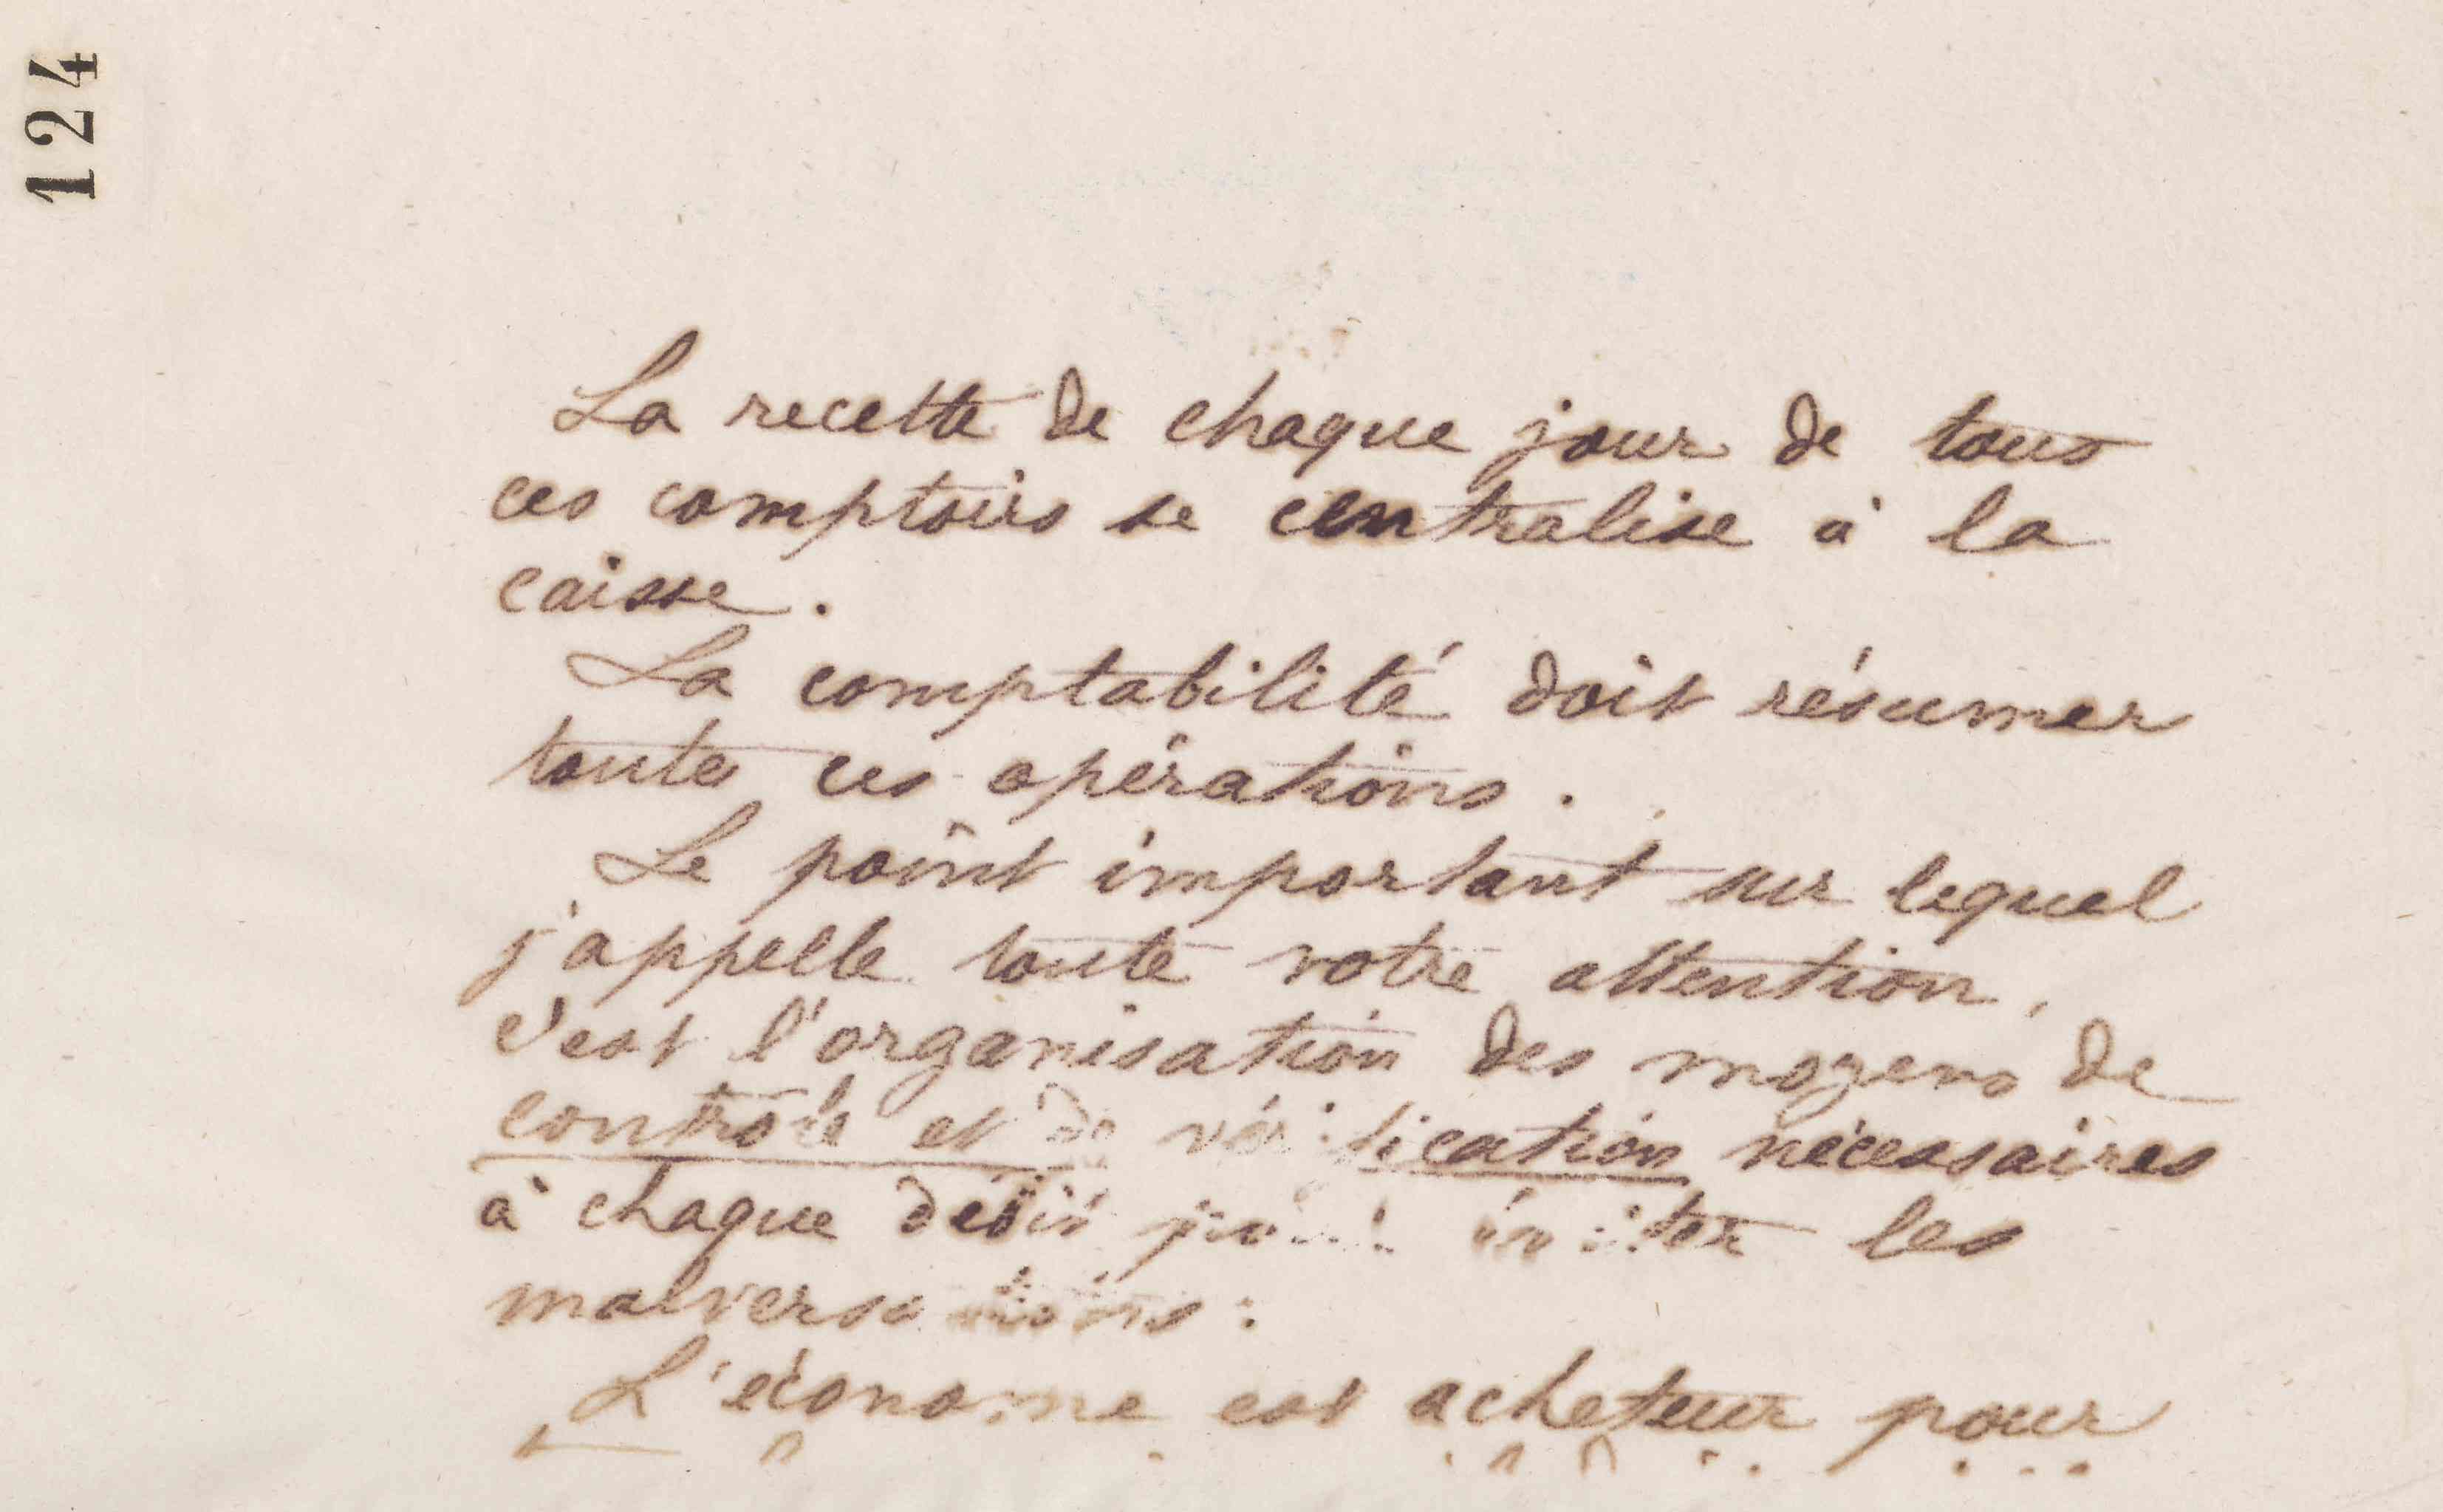 124
La recette de chaque jour de tous
ces comptoirs se centralise à la
caisse.
La comptabilité doit résumer
toutes ces opérations.
Le point important sur lequel
j'appelle toute votre attention,
c'est l'organisation des moyens de
contrôle et de vérification nécessaires
à chaque débit pour éviter les
malversations :
L'économe est acheteur pour